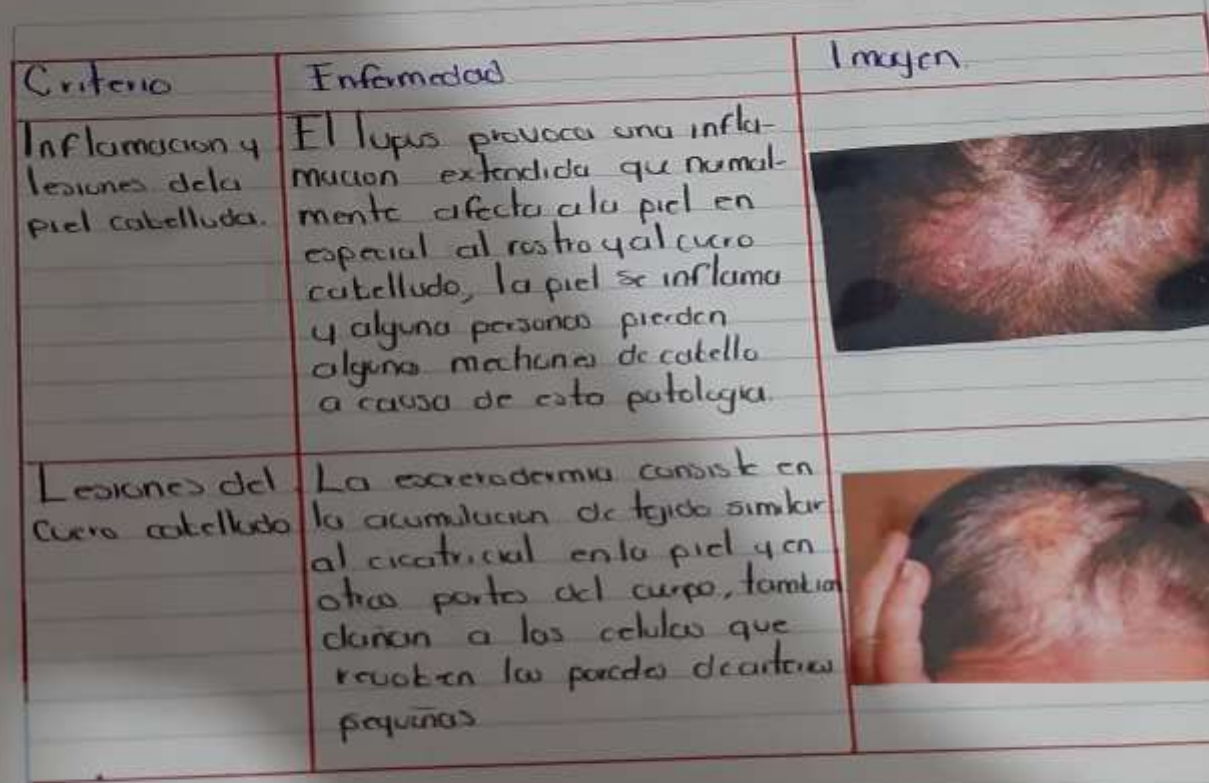 Criterio
Enfermedad
Imagen.
Inflamacion y
lesiones dela
piel cabelluda.
El lupus provoca una infla-
macion extendida que normal-
mente afecta ala piel en
especial al rostro y al cuero
cabelludo, la piel se inflama
y alguna personas pierden
alguno mechones de cabello
a causa de esta patologia.
Lesiones del
cuero cabelludo
La escrerodermia consiste en
la acumulacion de tejido similar
al cicatricial en la piel y en
otras partes del cuerpo, tambien
dañan a las celulas que
recubren las paredes de arterias
pequeñas